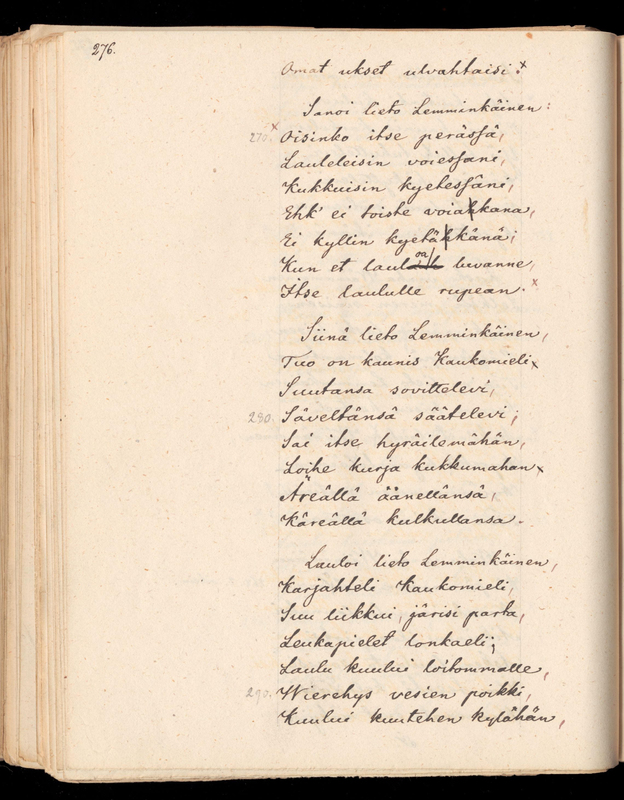 276.
Omat ukset ulvahtaisi.x
Sanoi lieto Lemminkäinen:
270. x Oisinko itse perässä,
Lauleleisin voiessani,
Kukkuisin kyetessäni,
Ehk' ei toiste voiahkana,
Ei kyllin kyetähkänä;
Kun et laul oa luvanne,
Itse laululle rupean. x
Siinä lieto Lemminkäinen,
Tuo on kaunis Kaukomieli x
Suutansa sovittelevi,
280. Säveltänsä säätelevi;
Sai itse hyräilemähän,
Loihe kurja kukkumahan x
Äreällä äänellänsä,
Käreällä kulkullansa.
Lauloi lieto Lemminkäinen,
Karjahteli Kaukomieli,
Suu liikkui, järisi parta,
Leukapielet lonkaeli;
Laulu kuului loitommalle,
290. Wierehys vesien poikki,
Kuului kuutehen kylähän,